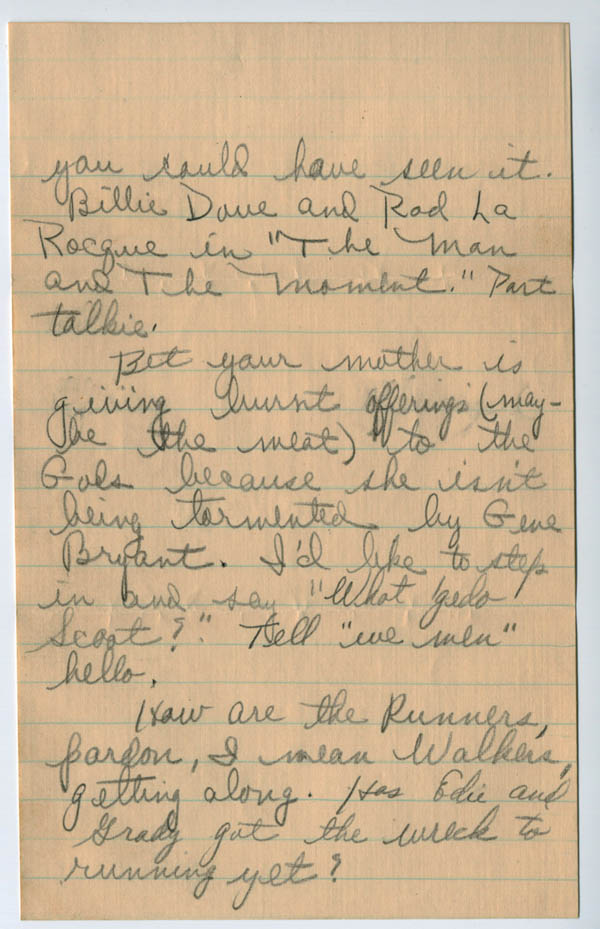 you could have seen it.
Billie Dove and Rod La
Rocque in "The Man
and The Moment." Part
talkie.
Bet your mother is
giving burnt offerings (may-
be the meat) to the
Gods because she isn't
being tormented by Gene
Bryant. I'd like to step
in and say "What 'gedo
Scoot?". Tell "we men"
hello.
How are the Runners,
pardon, I mean Walkers,
getting along. Has Edie and
Grady got the wreck to
running yet?